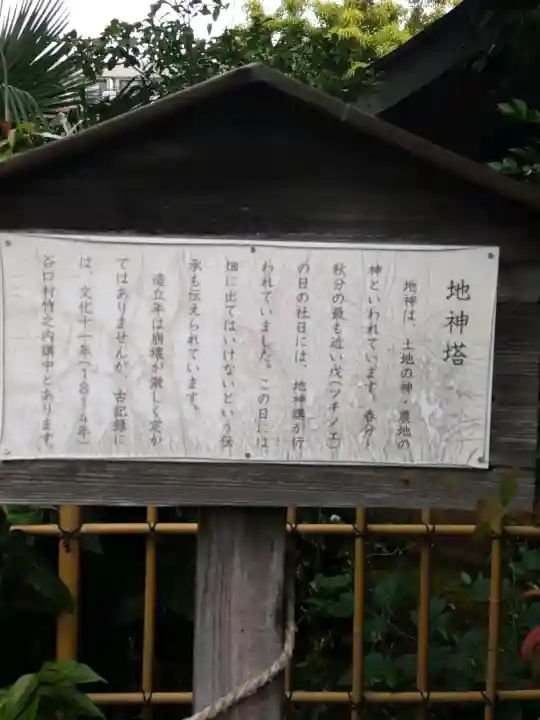 地神塔
地神は、土地の神・農地の
神といわれています。春分・
秋分の最も近い戊(ツチノエ)
の日の社日には、地神講が行
われていました。この日には
畑に出てはいけないという伝
承も伝えられています。
造立年は崩壊が激しく定か
ではありませんが、古記録に
は、文化十一年(1814年)
谷口村竹之内講中とあります。